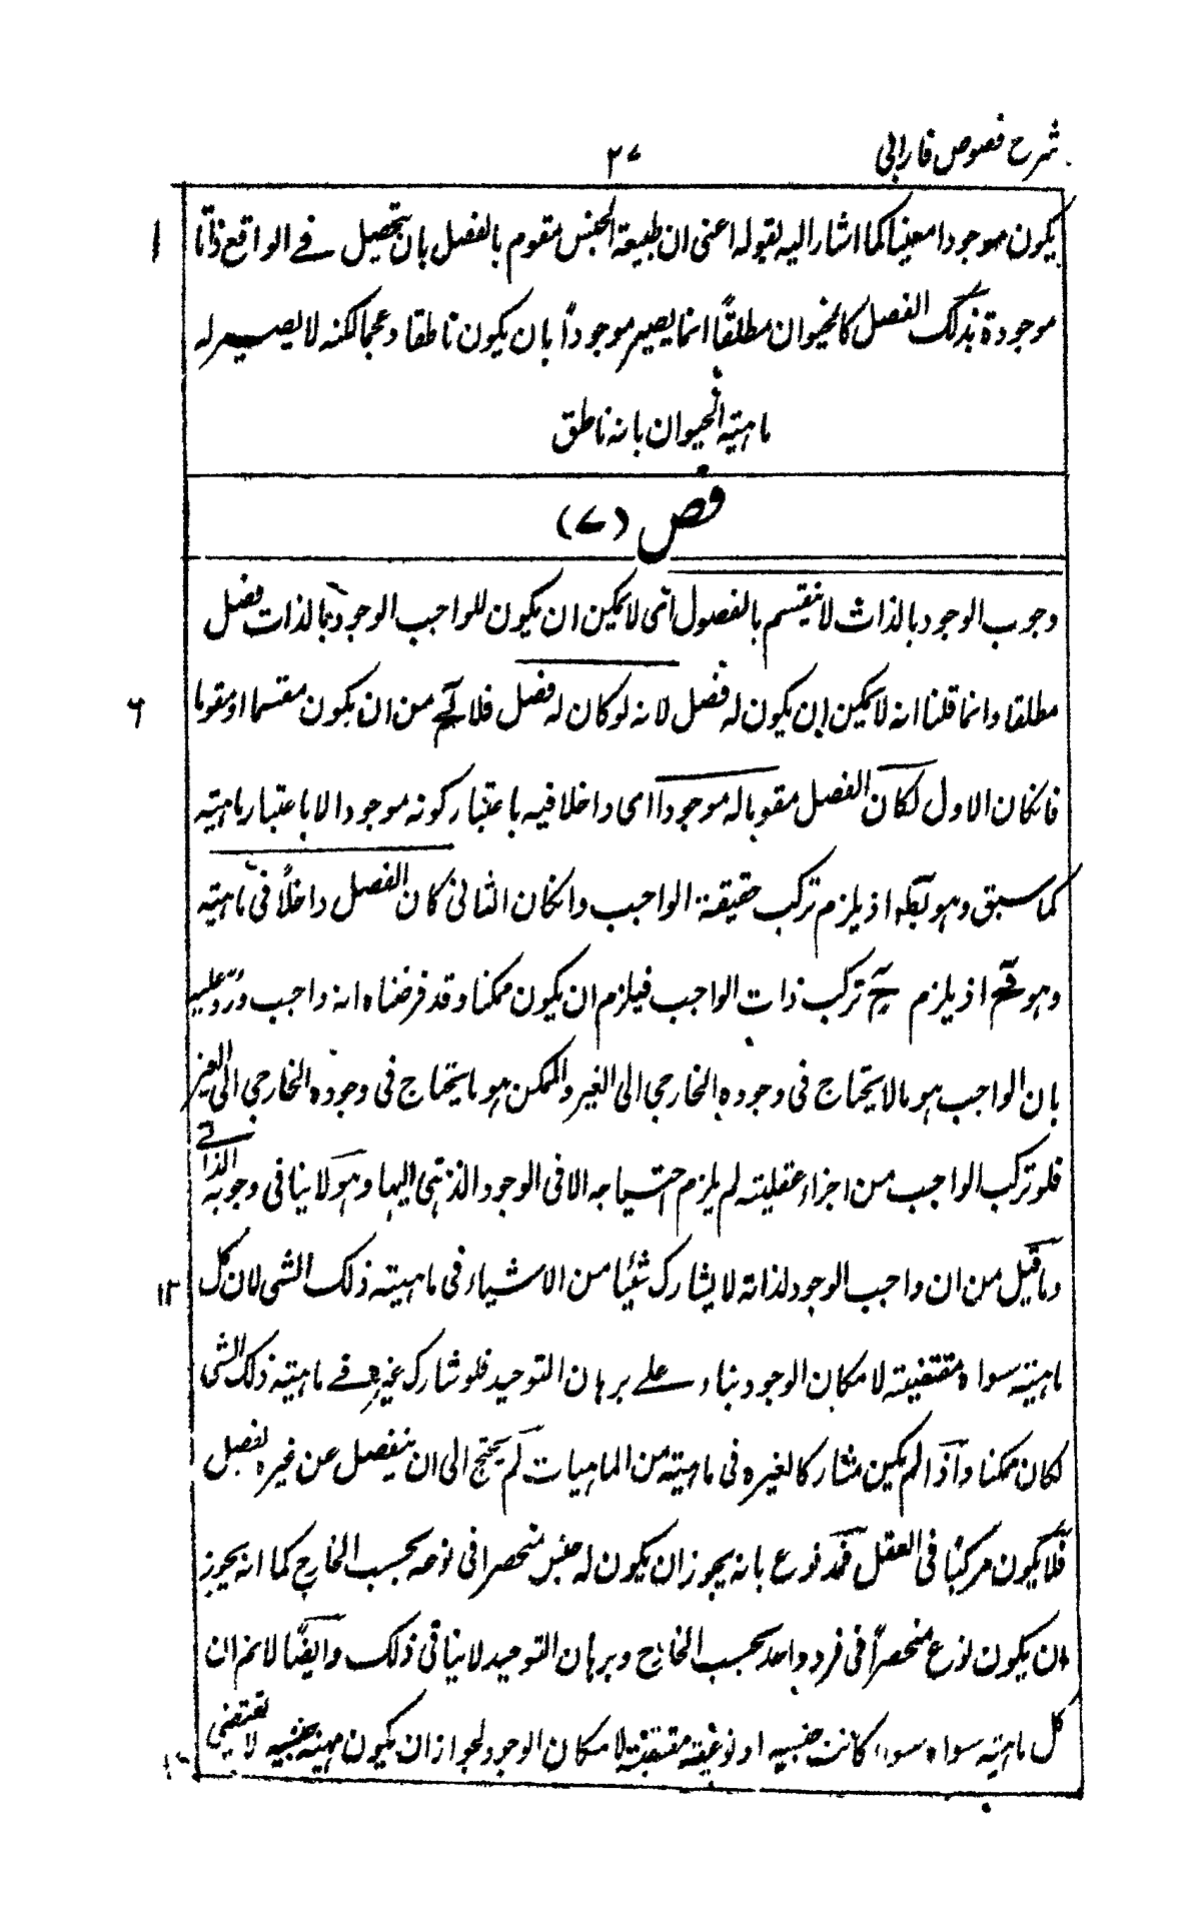 شرح فصوص فارابی
۲۷
یکون موجودا معینا کما اشار الیه بقوله اعنی ان طبیعة الجنس مقوم بالفصل بان یتحصیل فے الواقع ذاتا
۱
موجودة بذلک الفصل کالحیوان مطلقاً انما یصیر موجوداً بان یکون ناطقا و عجما لکنه لا یصیر له
ماهیته الحیوان بانه ناطق
فص (۷)
وجوب الوجود بالذات لا ینقسم بالفصول ای لا یمکن ان یکون للواجب الوجود بالذات فصل
مطلقا و انما قلنا انه لا یمکن ان یکون له فصل لانه لو کان له فصل فلا یخ من ان یکون مقسما او مقوما
۶
فانکان الاول لکان الفصل مقوما له موجودا ای داخلا فیه باعتبار کونه موجودا لا باعتبار ماهیته
کما سبق وهو بط اذ یلزم ترکب حقیقة الواجب وانکان الثانی کان الفصل داخلاً فی ماهیته
وهو مح اذ یلزم ح ترکب ذات الواجب فیلزم ان یکون ممکنا وقد فرضناه انه واجب وردّ علیه
بان الواجب هو مالا یحتاج فی وجوده الخارجی الی الغیر والممکن هو ما یحتاج فی وجوده الخارجی الی الغیر
فلو ترکب الواجب من اجزاء عقلیته لم یلزم احتیاجه الا فی الوجود الذهنی الیها وهو لا ینافی وجوبه الذاتے
وما قیل من ان واجب الوجود لذاته لا یشارک شیئا من الاشیاء فی ماهیته ذلک الشی لان کل
۱۲
ماهیته سواه مقتضیته لامکان الوجود بناء علے برهان التوحید فلو شارک غیره فے ماهیته ذلک الشی
لکان ممکنا و اذا لم یکن مشارکا لغیره فی ماهیته من الماهیات لم یحتج الی ان ینفصل عن غیره بفصل
فلا یکون مرکبًا فی العقل فمدفوع بانه یجوز ان یکون له جنس منحصرا فی نوعه بحسب الخارج کما انه یجوز
ان یکون نوع منحصراً فی فرد واحد بحسب الخارج وبرهان التوحید لا ینافی ذلک وایضًا لا نم ان
کل ماهیته سواه سواء کانت جنسیه او نوعیته مقتضیته لامکان الوجود لجواز ان یکون مهیته جنسیه لا تقتضی